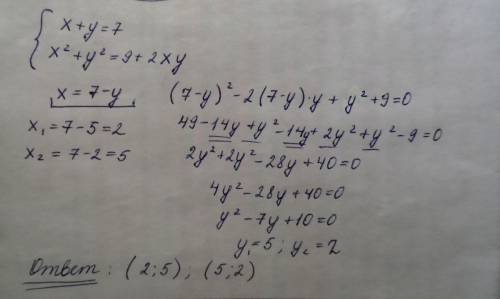 x+y=7
x²+y²=9+2xy
x=7-y (7-y)²-2(7-y)·y+y²+9=0
x₁=7-5=2 49-14y+y²-14y+2y²+y²-9=0
x₂=7-2=5 2y²+2y²-28y+40=0
4y²-28y+40=0
y²-7y+10=0
y₁=5; y₂=2
Ответ: (2;5), (5;2)